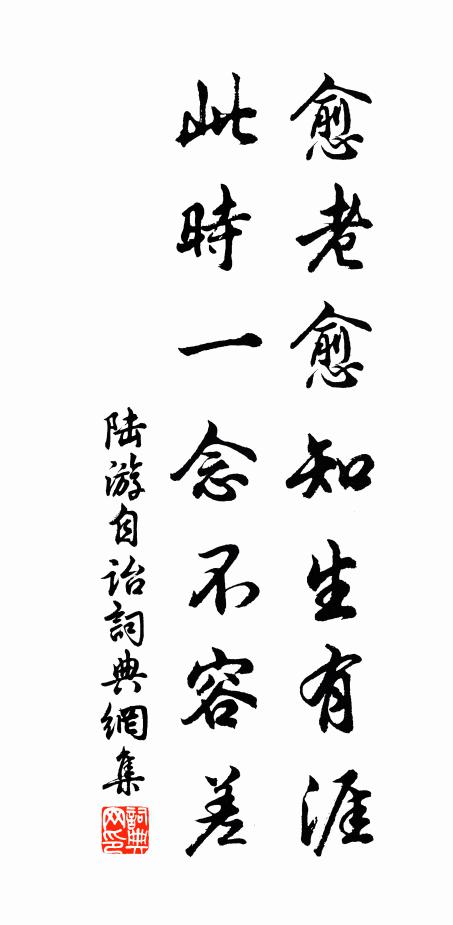 愈老愈知生有涯
此時一念不容差
陸游自詒詞典網集
詞典网印